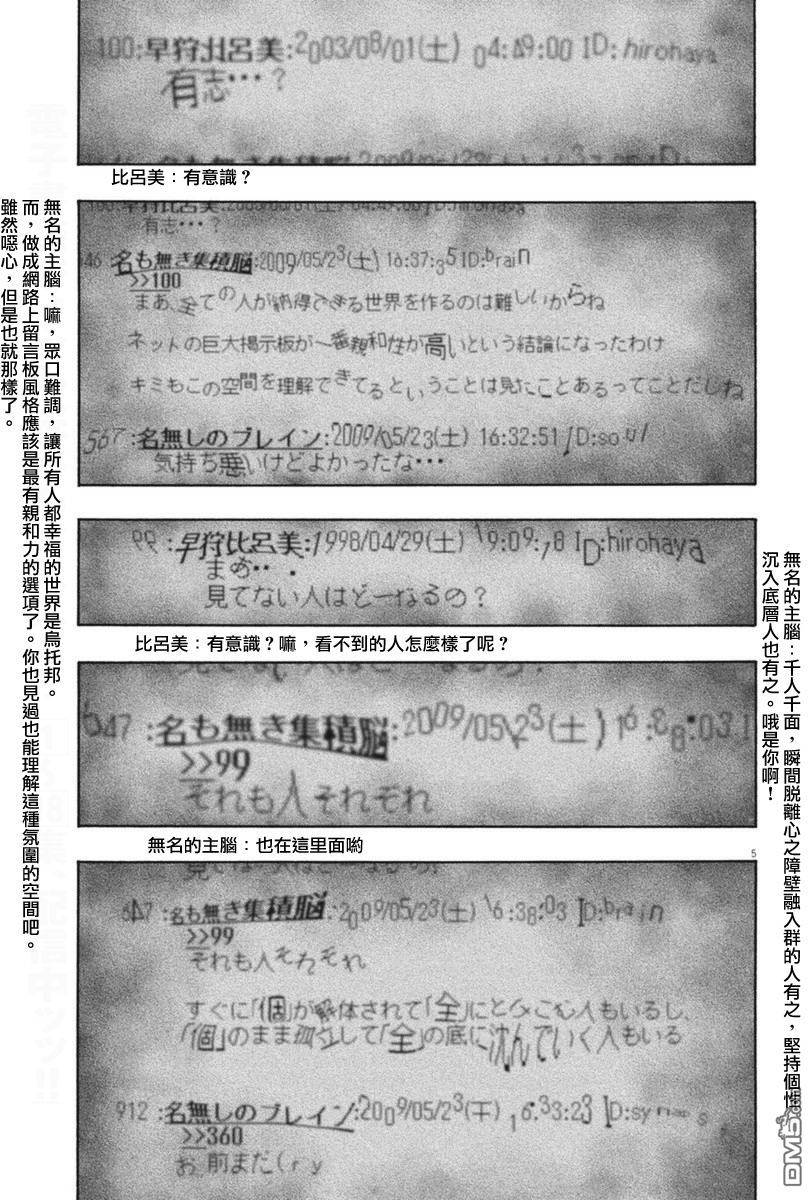 100:早狩比呂美:2003/08/01(土) 04:49:00 ID:hirohaya
有志…?
比呂美：有意識？
100:早狩比呂美:2003/08/01(土) 04:49:00 ID:hirohaya
有志…?
546 名も無き集積脳:2009/05/23(土) 16:37:35 ID:brain
>>100
まあ、全ての人が納得できる世界を作るのは難しいからね
ネットの巨大掲示板が一番親和性が高いという結論になったわけ
キミもこの空間を理解できてるということは見たことあるってことだしね
567 :名無しのブレイン:2009/05/23(土) 16:32:51 ID:soul
気持ち悪いけどよかったな…
無名的主腦：嘛，眾口難調，讓所有人都幸福的世界是烏托邦。
而，做成網路上留言板風格應該是最有親和力的選項了。你也見過也能理解這種氛圍的空間吧。
雖然噁心，但是也就那樣了。
99 :早狩比呂美:1998/04/29(土) 19:09:18 ID:hirohaya
まあ・・
見てない人はどーなるの?
比呂美：有意識？嘛，看不到的人怎麼樣了呢？
647 :名も無き集積脳:2009/05/23(土) 16:38:03 I
>>99
それも人それぞれ
無名的主腦：也在這里面喲
5
647 :名も無き集積脳:2009/05/23(土) 16:38:03 ID:brain
>>99
それも人それぞれ
すぐに「個」が解体されて「全」にとらこむ人もいるし、
「個」のまま孤立して「全」の底に沈んでいく人もいる
912 :名無しのブレイン:2009/05/23(干) 16:33:23 ID:synapse
>>360
お前まだ(ry
無名的主腦：千人千面，瞬間脱離心之障壁融入群的人有之，堅持個性
沉入底層人也有之。哦是你啊！
DM5